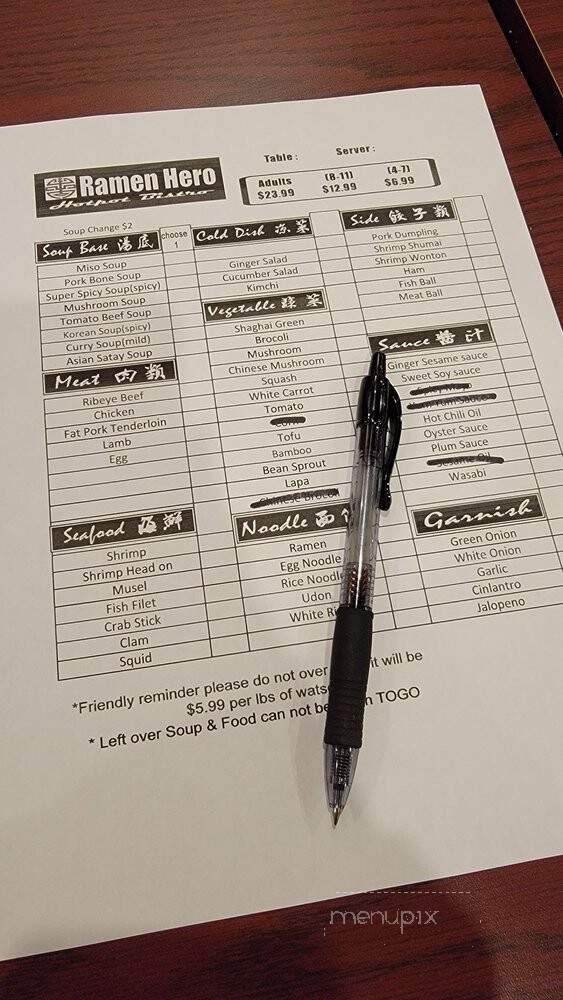 Ramen Hero
Hotpot Bistro
Table : Server :
Adults (8-11) (4-7)
$23.99 $12.99 $6.99
Soup Change $2
Soup Base 湯底
choose
1
Miso Soup
Pork Bone Soup
Super Spicy Soup(spicy)
Mushroom Soup
Tomato Beef Soup
Korean Soup(spicy)
Curry Soup(mild)
Asian Satay Soup
Meat 肉類
Ribeye Beef
Chicken
Fat Pork Tenderloin
Lamb
Egg
Seafood 海鮮
Shrimp
Shrimp Head on
Musel
Fish Filet
Crab Stick
Clam
Squid
Cold Dish 冻菜
Ginger Salad
Cucumber Salad
Kimchi
Vegetable 綠菜
Shaghai Green
Brocoli
Mushroom
Chinese Mushroom
Squash
White Carrot
Tomato
Corn
Tofu
Bamboo
Bean Sprout
Lapa
Chinese Brocoli
Noodle 面
Ramen
Egg Noodle
Rice Noodle
Udon
White
Side 餃子類
Pork Dumpling
Shrimp Shumai
Shrimp Wonton
Ham
Fish Ball
Meat Ball
Sauce 醬汁
Ginger Sesame sauce
Sweet Soy sauce
Spicy Mayo
Yum Yum Sauce
Hot Chili Oil
Oyster Sauce
Plum Sauce
Sesame Oil
Wasabi
Garnish
Green Onion
White Onion
Garlic
Cinlantro
Jalopeno
*Friendly reminder please do not over it will be
$5.99 per lbs of
* Left over Soup & Food can not TOGO
menupix